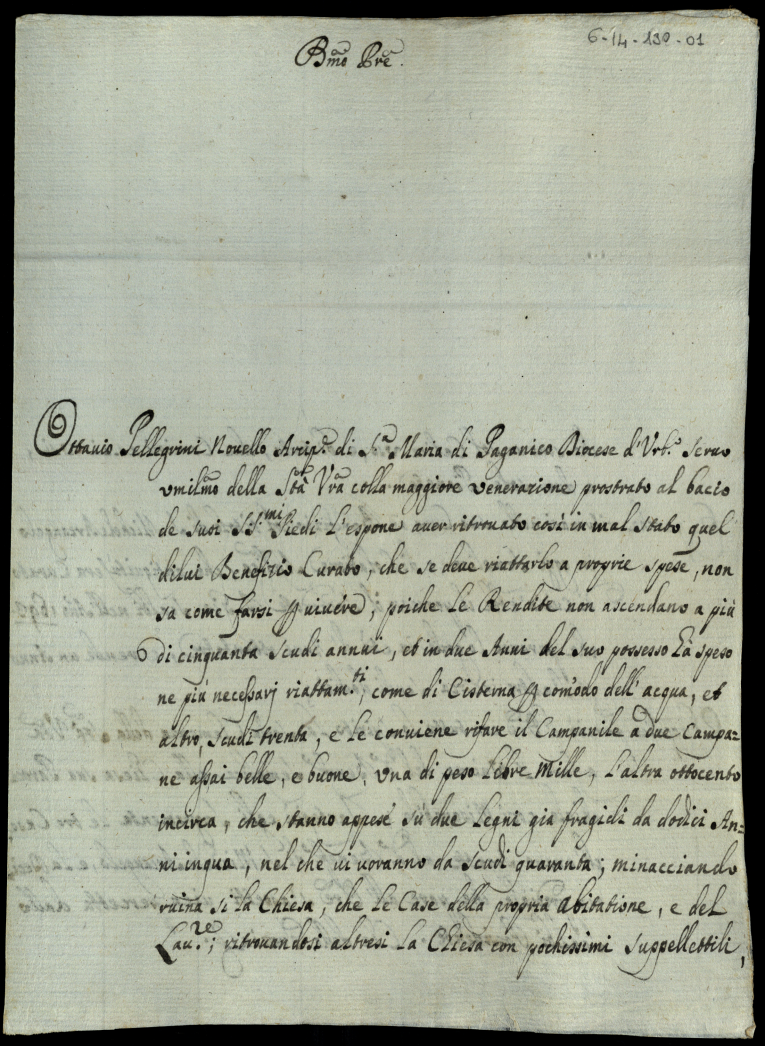 6-14-130-01
Bmo Pre.
Ottavio Pellegrini Novello Arcip.e di S.a Maria di Paganico Diocese d'Urb.o Servo
umilmo della Stà Vra colla maggiore venerazione prostrato al bacio
de suoi SS.mi Piedi L'espone aver ritrovato così in mal stato quel
dilui Benefizio Curato, che se deve riattarlo a proprie spese, non
sa come farsi p vivere; poiche le Rendite non ascendano a più
di cinquanta scudi annui, et in due Anni del suo possesso hà speso
ne più necessarj riattam.ti, come di Cisterna p comodo dell'acqua, et
altro, scudi trenta, e le conviene rifare il Campanile a due Campa=
ne assai belle, e buone, una di peso libre mille, l'altra ottocento
incirca, che stanno appese sù due legni già fragidi da dodici An=
ni inqua, nel che vi voranno da scudi quaranta; minacciando
ruina sì la Chiesa, che le Case della propria abitatione, e del
Lav.re; ritrovandosi altresì la Chiesa con pochissimi suppellettili,